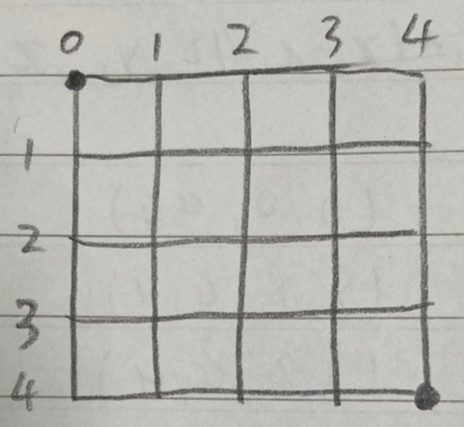 0 1 2 3 4
1
2
3
4